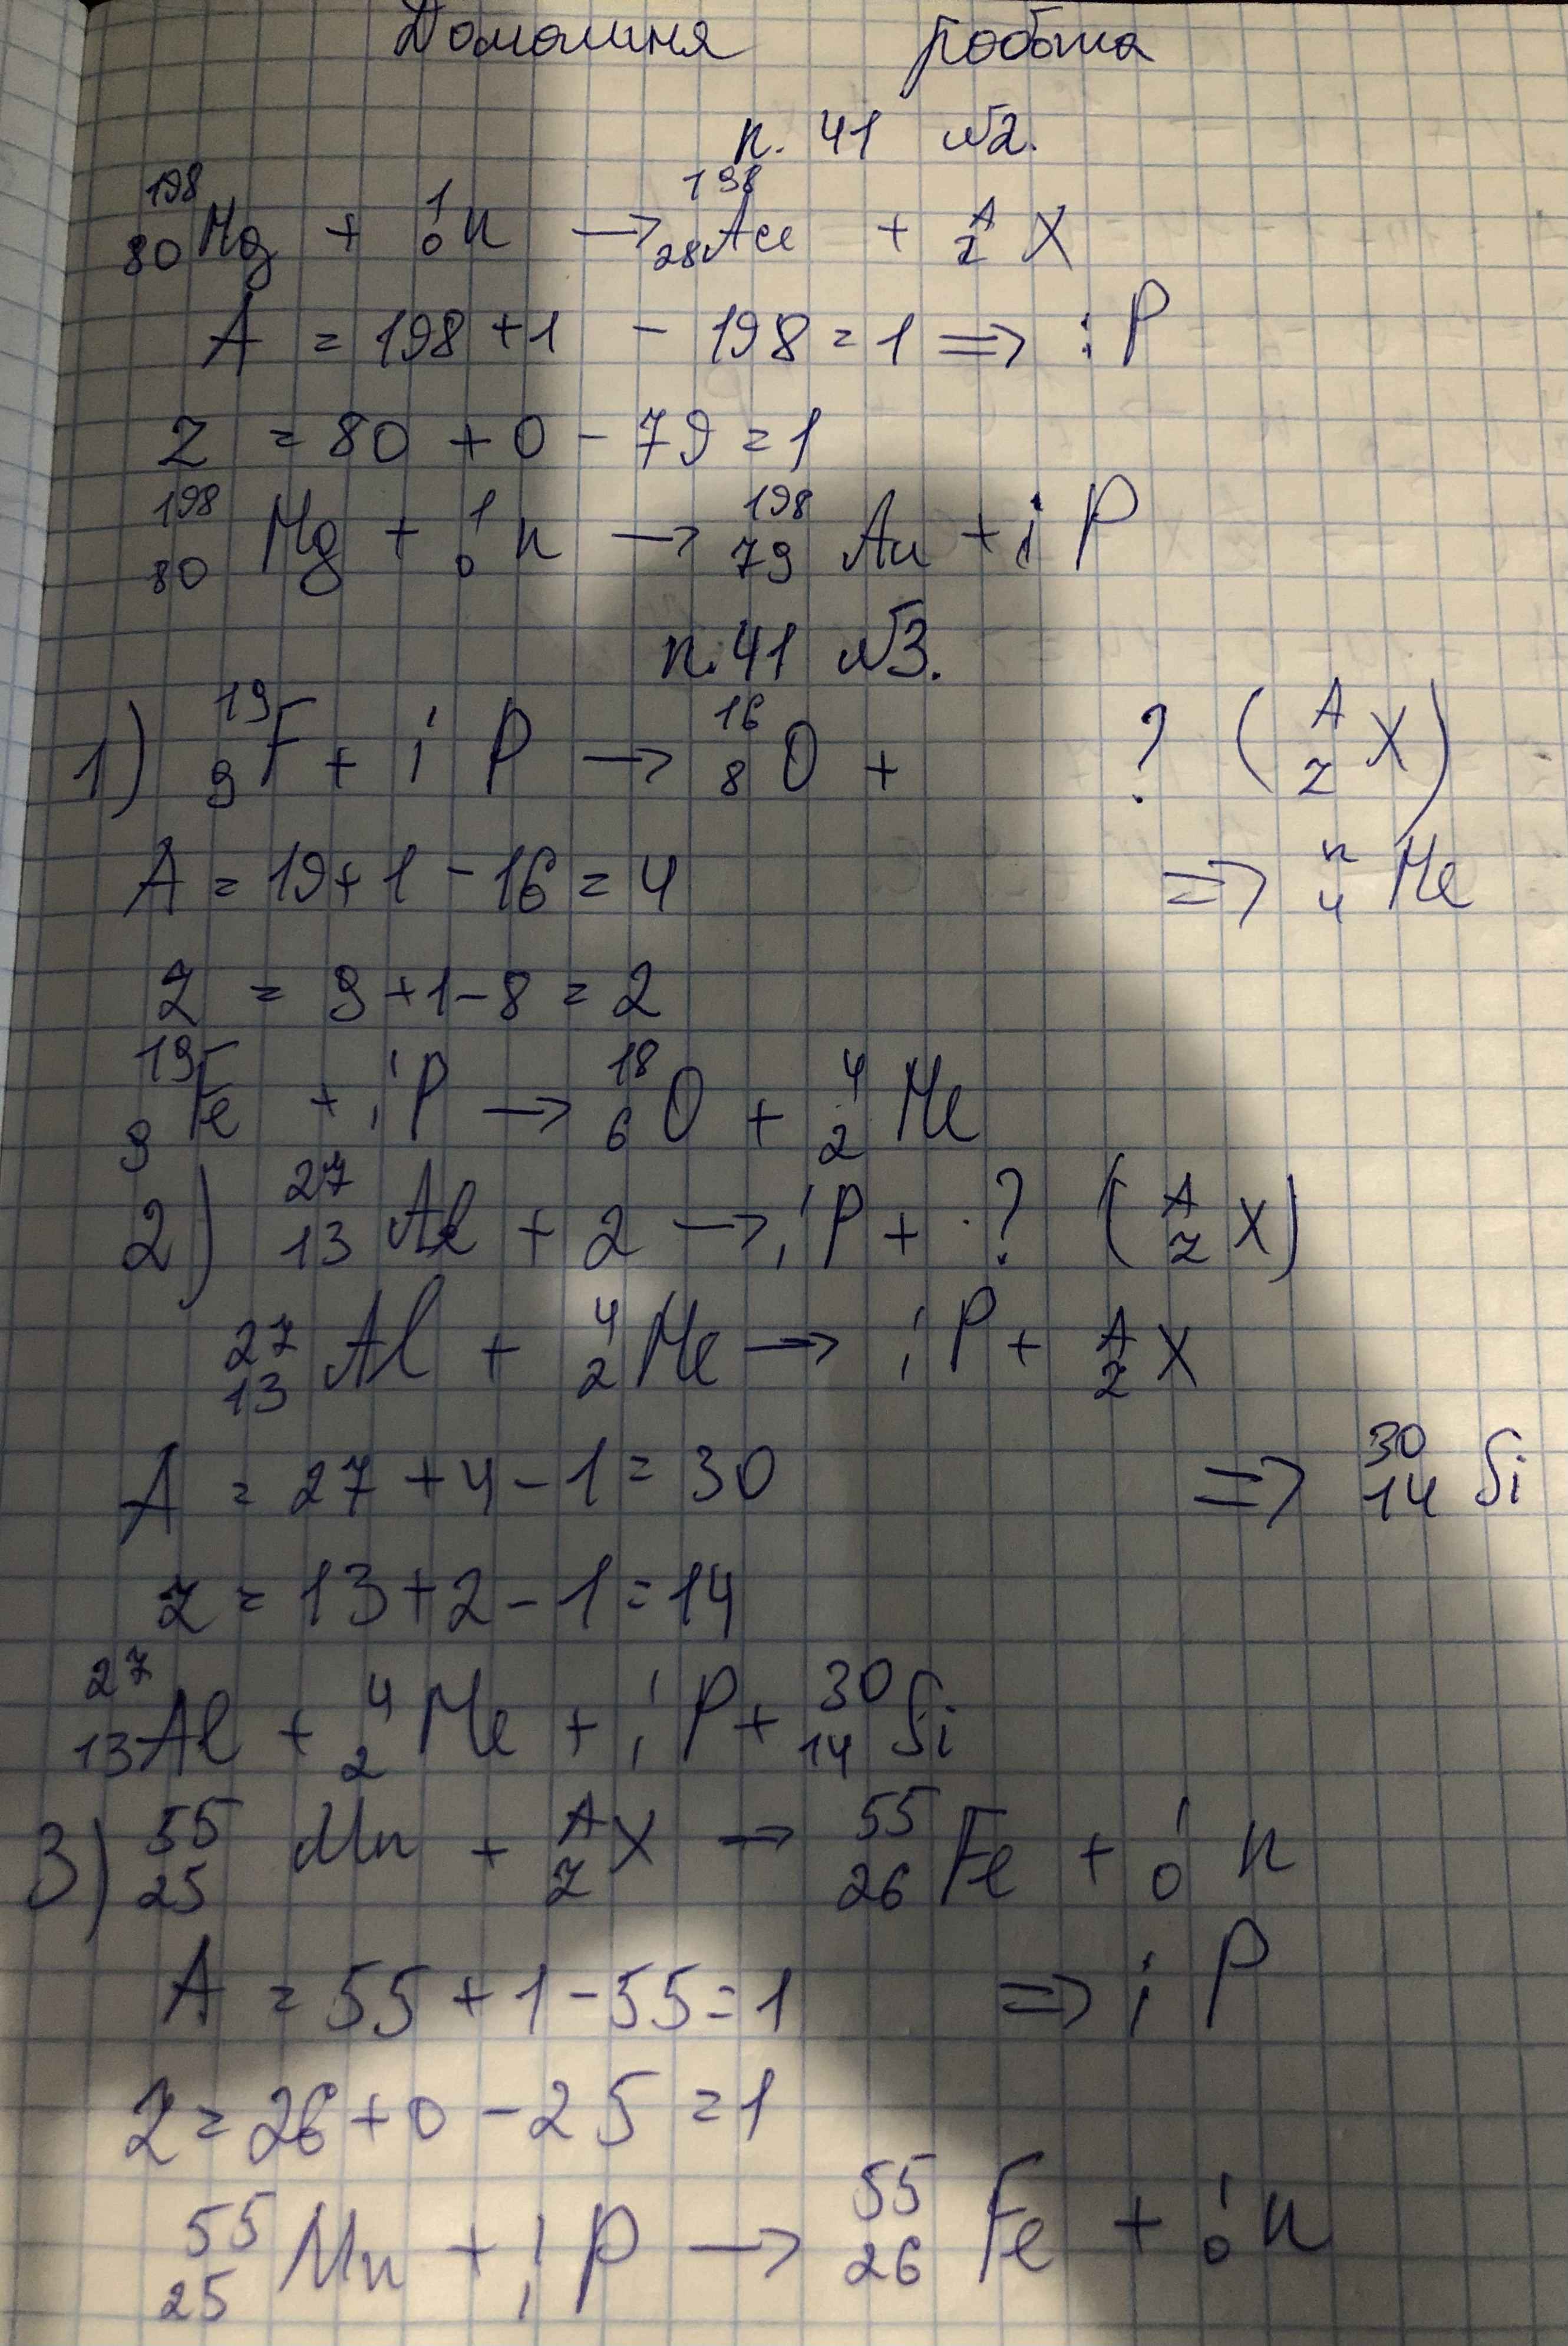 Домашня робота
п. 41 №2.
¹⁹⁸₈₀Hg + ¹₀n → ¹⁹⁸₂₈Au + ᴬ_Z X
A = 198 + 1 - 198 = 1 => ¹₁P
Z = 80 + 0 - 79 = 1
¹⁹⁸₈₀Hg + ¹₀n → ¹⁹⁸₇₉Au + ¹₁P
п. 41 №3.
1) ¹⁹₉F + ¹₁P → ¹⁶₈O + ? (ᴬ_Z X)
A = 19 + 1 - 16 = 4 => ⁿ₄He
Z = 9 + 1 - 8 = 2
¹⁹₉Fe + ¹₁P → ¹⁸₆O + ⁴₂He
2) ²⁷₁₃Al + 2 → ¹₁P + ? (ᴬ_Z X)
²⁷₁₃Al + ⁴₂He → ¹₁P + ᴬ_Z X
A = 27 + 4 - 1 = 30 => ³⁰₁₄Si
Z = 13 + 2 - 1 = 14
²⁷₁₃Al + ⁴₂He + ¹₁P + ³⁰₁₄Si
3) ⁵⁵₂₅Mn + ᴬ_Z X → ⁵⁵₂₆Fe + ¹₀n
A = 55 + 1 - 55 = 1 => ¹₁P
Z = 26 + 0 - 25 = 1
⁵⁵₂₅Mn + ¹₁P → ⁵⁵₂₆Fe + ¹₀n